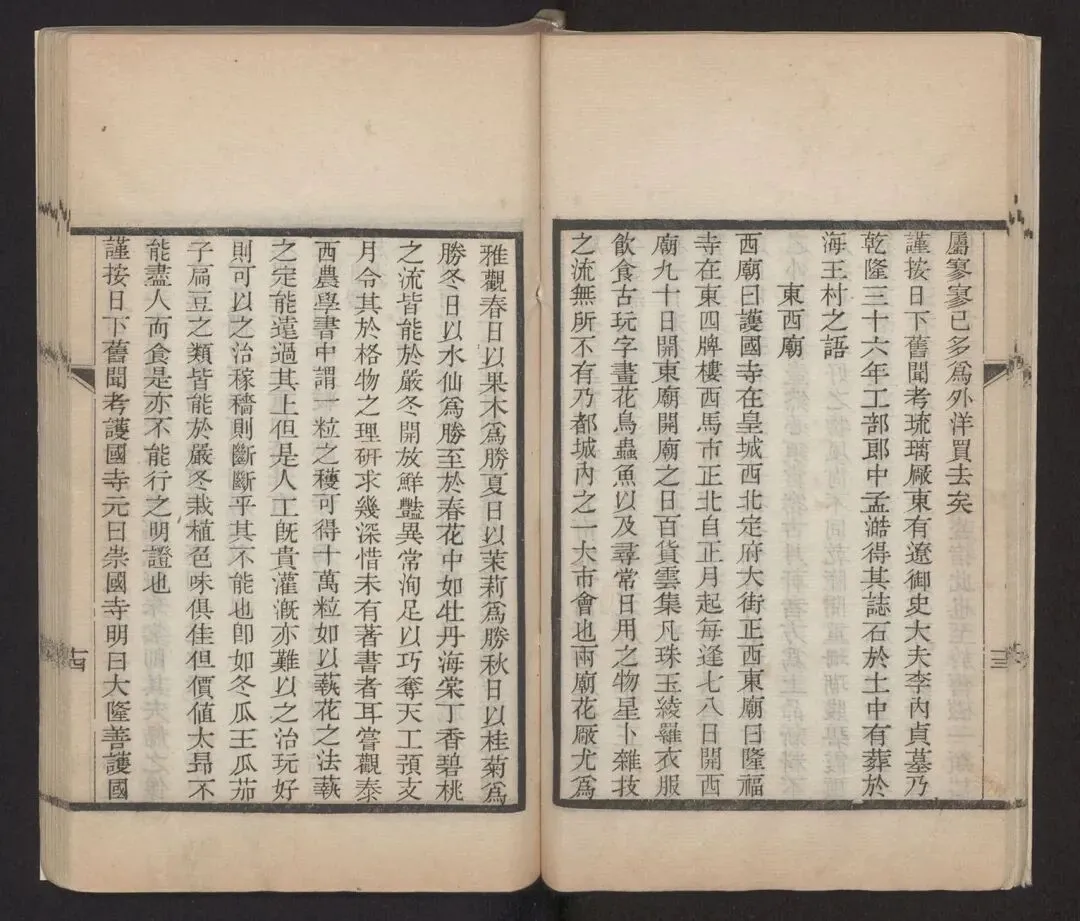 屬寥寥已多爲外洋買去矣
謹按日下舊聞考琉璃厰東有遼御史大夫李內貞墓乃
乾隆三十六年工部郎中孟澔得其誌石於土中有葬於
海王村之語
東西廟
西廟曰護國寺在皇城西北定府大街正西東廟曰隆福
寺在東四牌樓西馬市正北自正月起每逢七八日開西
廟九十日開東廟開廟之日百貨雲集凡珠玉綾羅衣服
飲食古玩字畫花鳥蟲魚以及尋常日用之物星卜雜技
之流無所不有乃都城內之一大市會也兩廟花厰尤爲
雅觀春日以果木爲勝夏日以茉莉爲勝秋日以桂菊爲
勝冬日以水仙爲勝至於春花中如牡丹海棠丁香碧桃
之流皆能於嚴冬開放鮮豔異常洵足以巧奪天工預支
月令其於格物之理硏求幾深惜未有著書者耳嘗觀泰
西農學書中謂一粒之穫可得十萬粒如以蓺花之法蓺
之定能遠過其上但是人工旣貴灌漑亦難以之治玩好
則可以之治稼穡則斷斷乎其不能也卽如冬瓜王瓜茄
子扁豆之類皆能於嚴冬栽植色味俱佳但價値太昂不
能盡人而食是亦不能行之明證也
謹按日下舊聞考護國寺元曰崇國寺明曰大隆善護國
十四